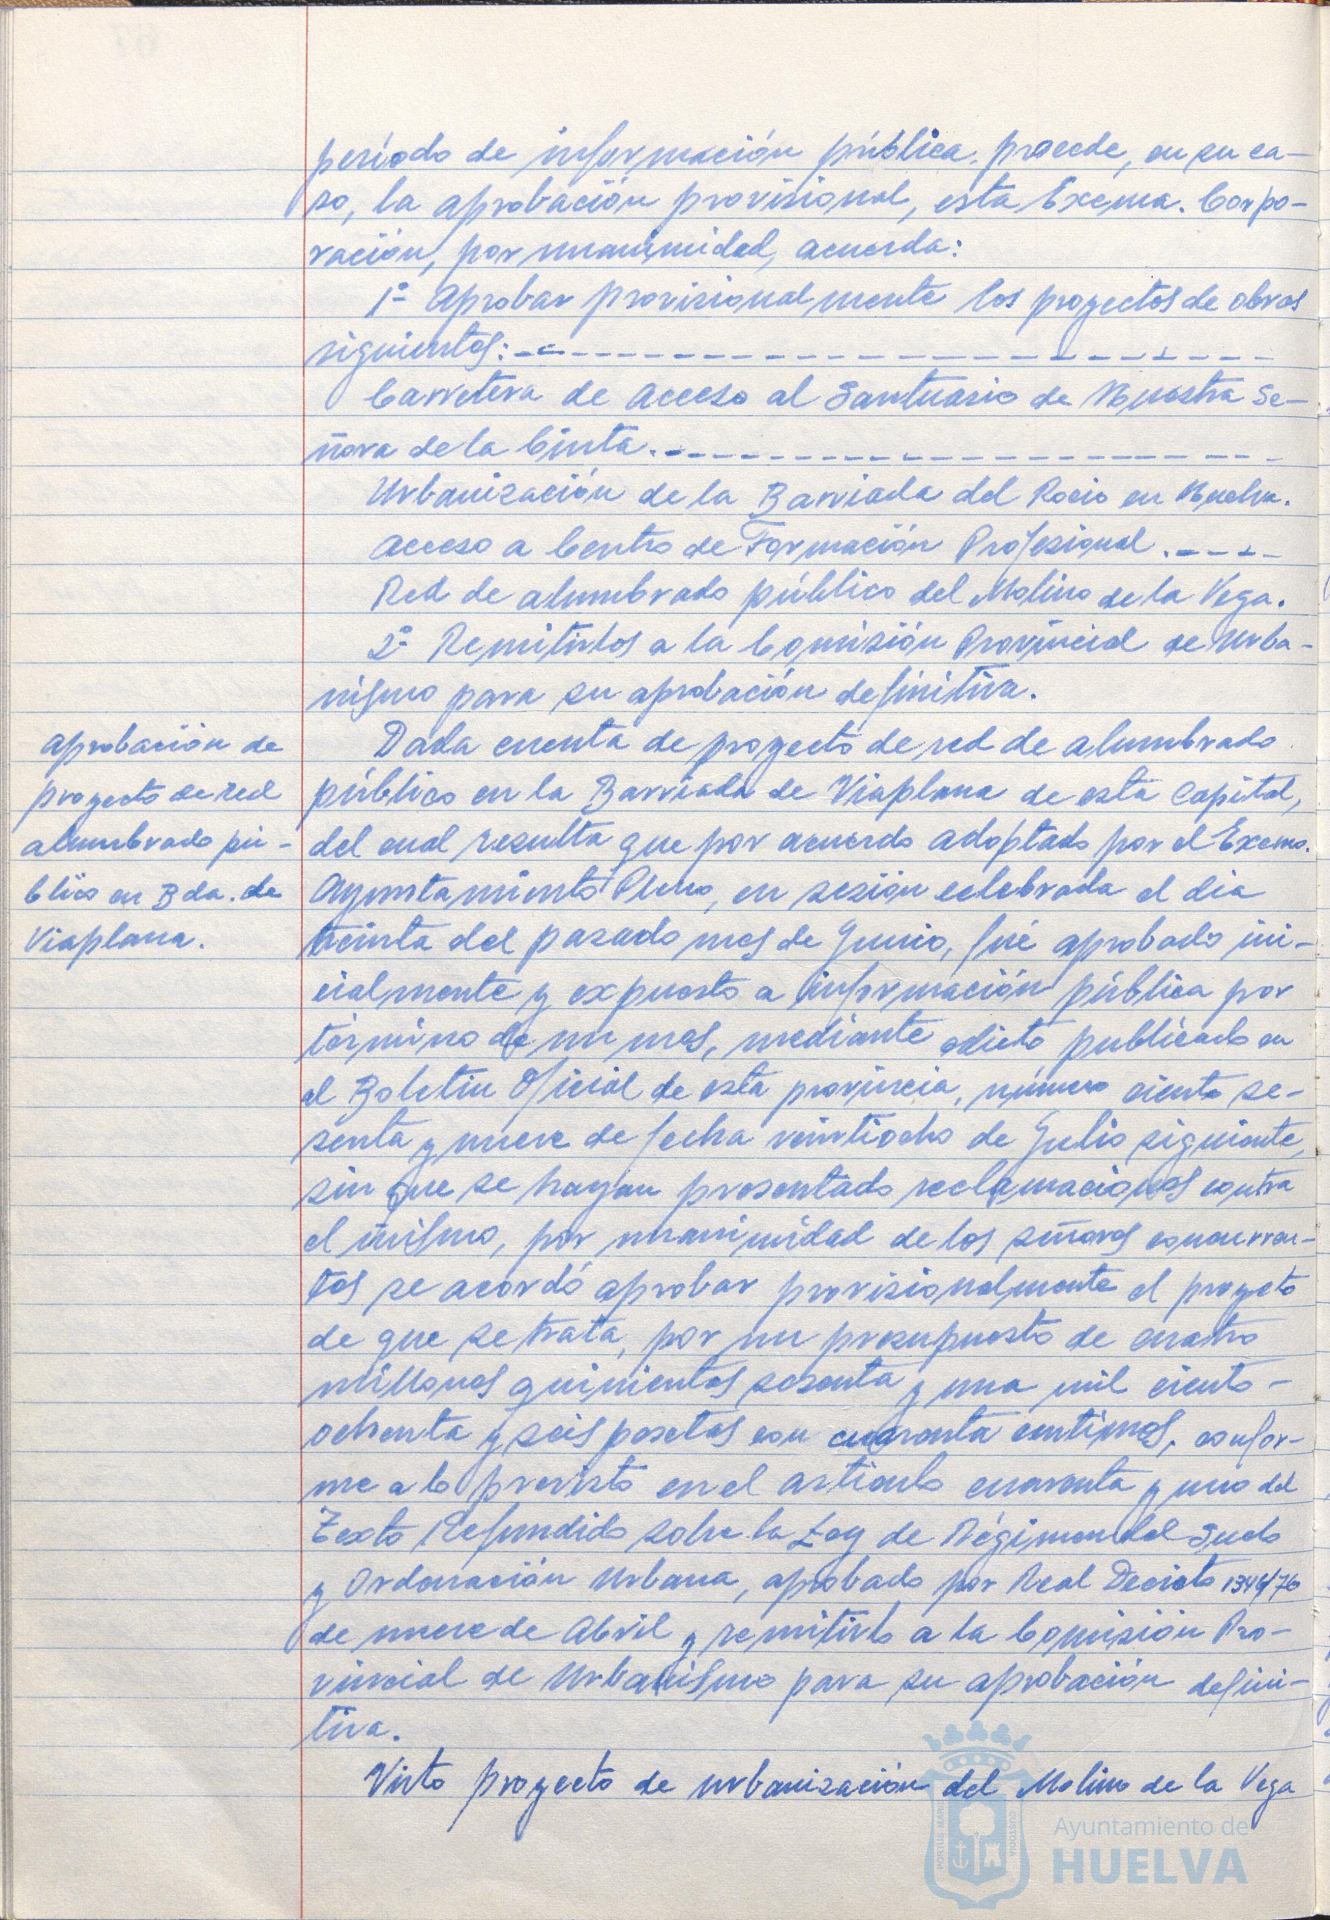 período de información pública, procede, en su ca-
so, la aprobación provisional, esta Excma. Corpo-
ración, por unanimidad, acuerda:
1º Aprobar provisionalmente los proyectos de obras
siguientes:
Carretera de Acceso al Santuario de Nuestra Se-
ñora de la Cinta.
Urbanización de la Barriada del Rocio en Huelva.
Acceso a Centro de Formación Profesional.
Red de alumbrado público del Molino de la Vega.
2º Remitirlos a la Comisión Provincial de Urba-
nismo para su aprobación definitiva.
Aprobación de
proyecto de red
alumbrado pú-
blico en Bda. de
Viaplana.
Dada cuenta de proyecto de red de alumbrado
público en la Barriada de Viaplana de esta Capital,
del cual resulta que por acuerdo adoptado por el Excmo.
Ayuntamiento Pleno, en sesión celebrada el dia
treinta del pasado mes de Junio, fué aprobado ini-
cialmente y expuesto a información pública por
término de un mes, mediante edicto publicado en
el Boletin Oficial de esta provincia, número ciento se-
senta y nueve de fecha veintiocho de Julio siguiente,
sin que se hayan presentado reclamaciones contra
el mismo, por unanimidad de los señores concurren-
tes se acordó aprobar provisionalmente el proyecto
de que se trata, por un presupuesto de cuatro
millones quinientas sesenta y una mil ciento
ochenta y seis pesetas con cuarenta centimos, confor-
me a lo previsto en el articulo cuarenta y uno del
Texto Refundido sobre la Ley de Régimen del Suelo
y Ordenación Urbana, aprobado por Real Decreto 1346/76
de nueve de Abril y remitirlo a la Comisión Pro-
vincial de Urbanismo para su aprobación defini-
tiva.
Visto proyecto de urbanización del Molino de la Vega
Ayuntamiento de
HUELVA